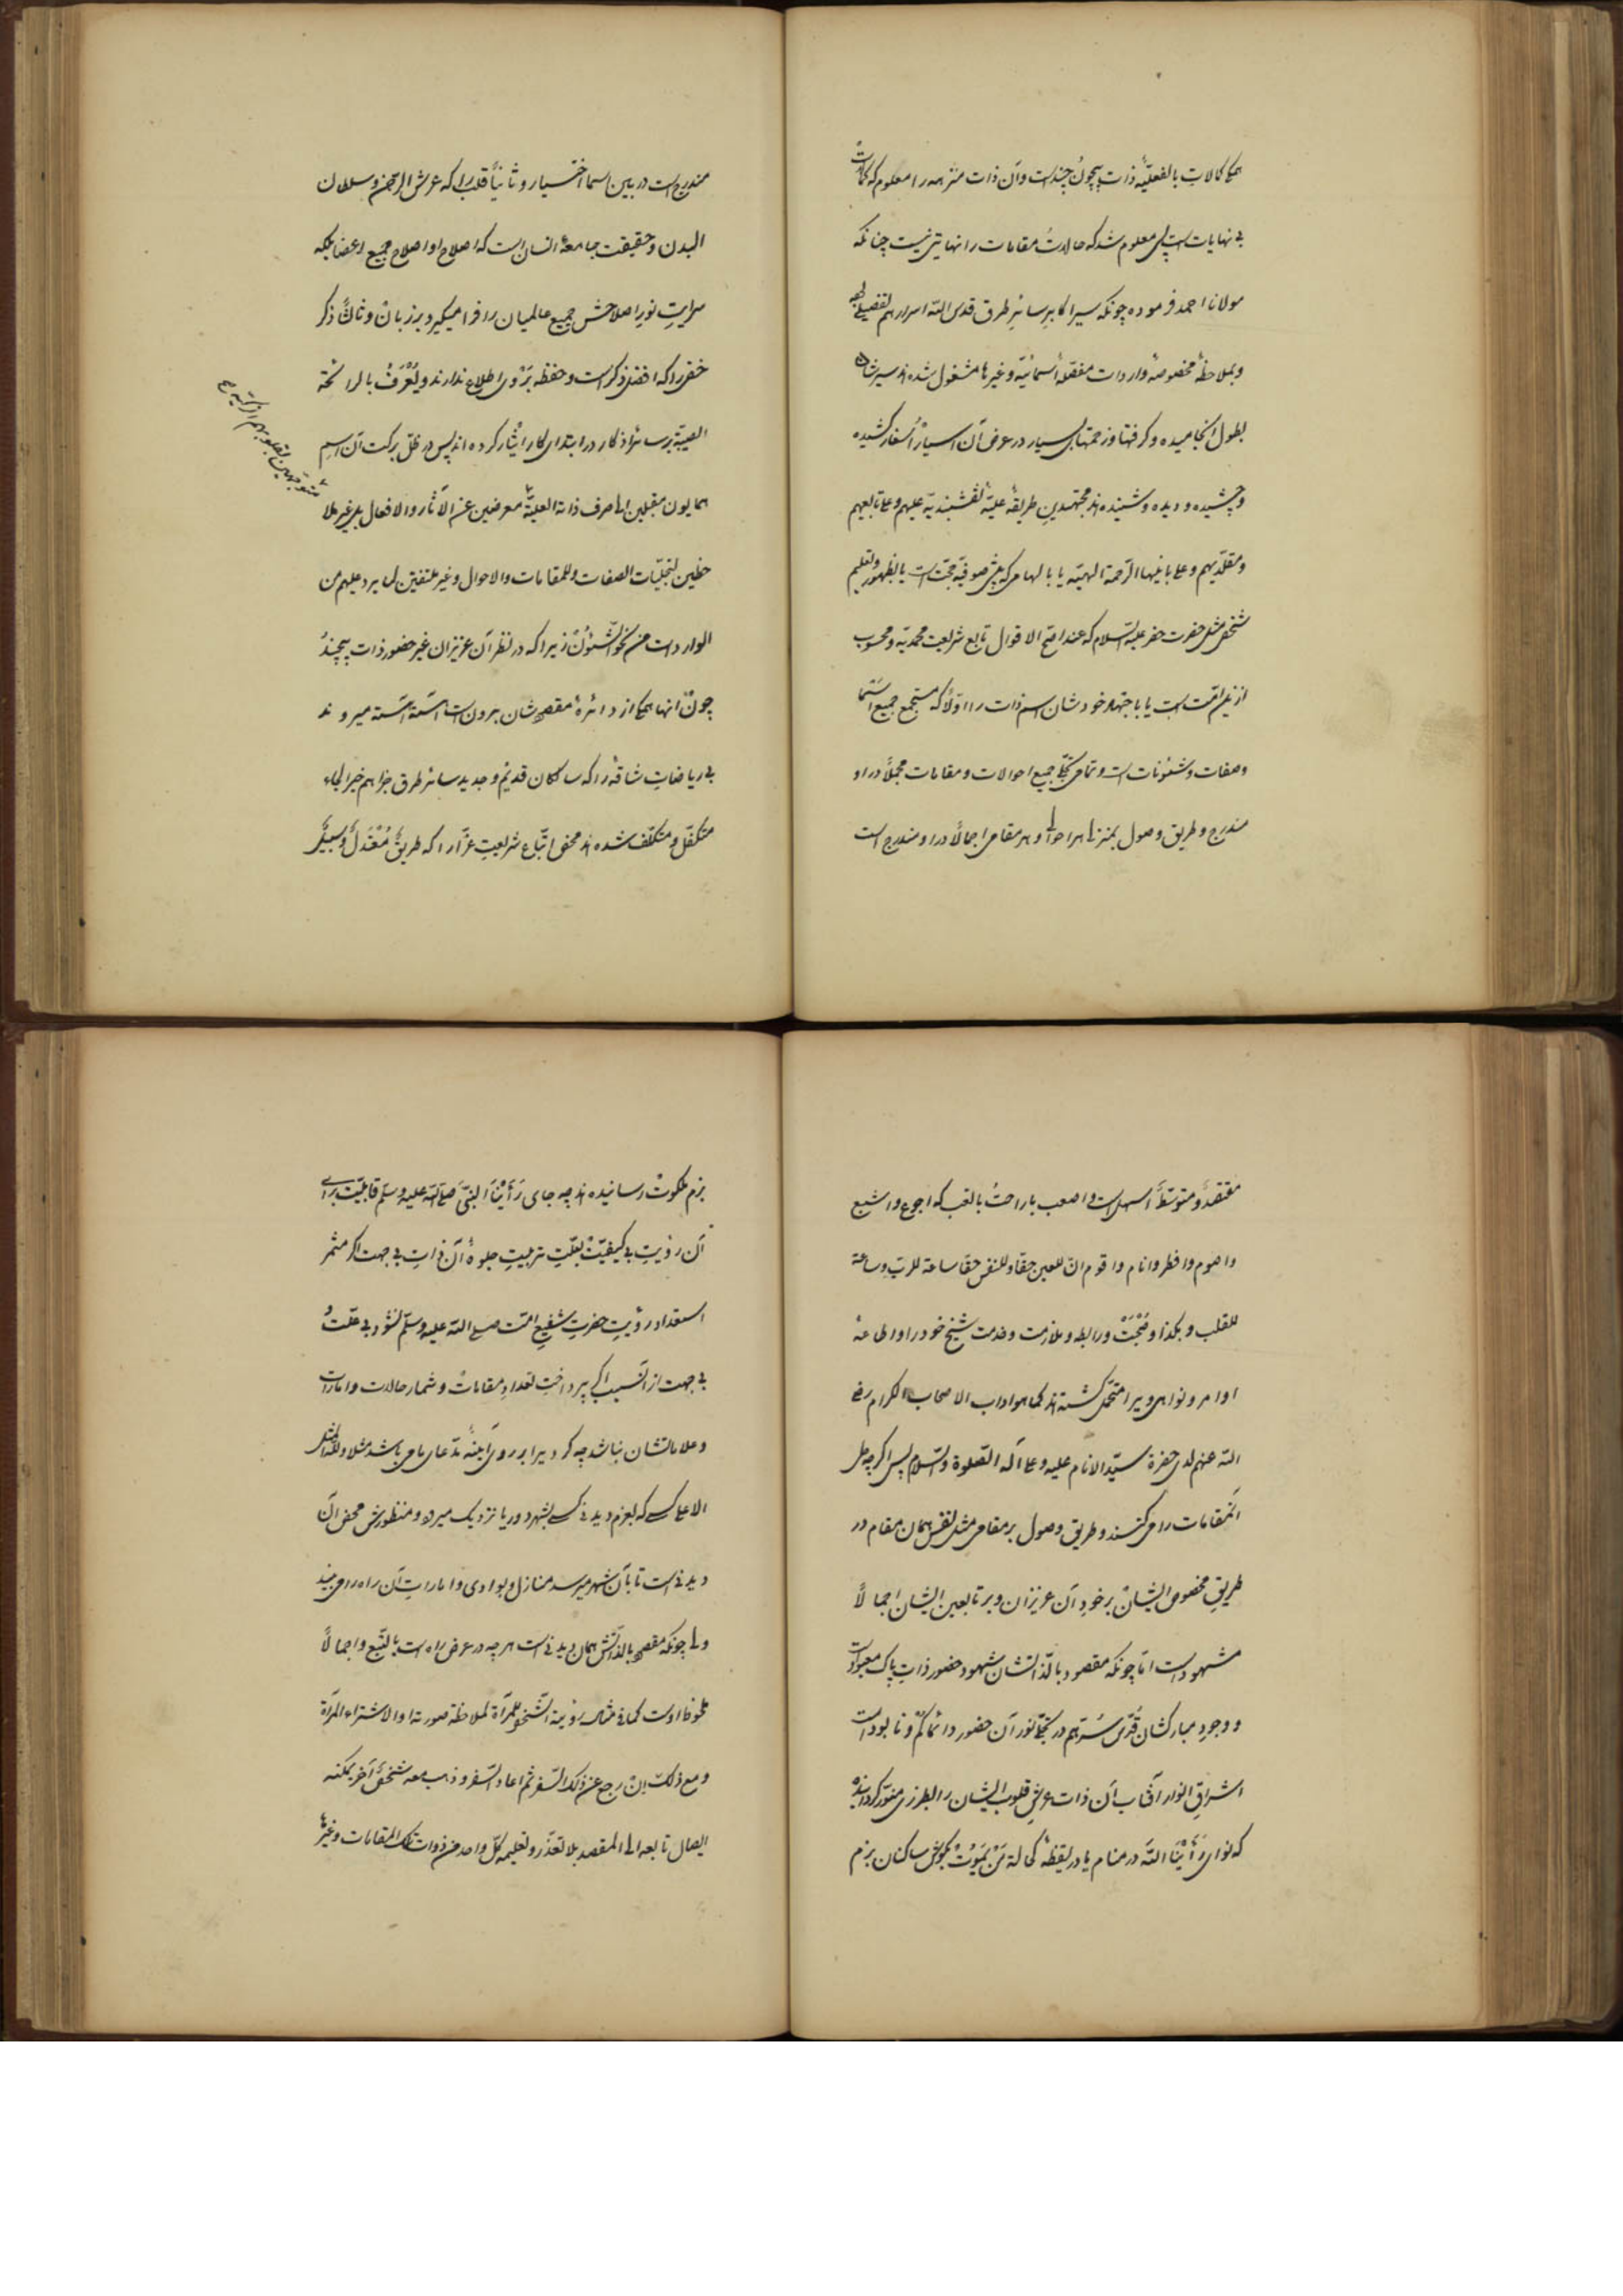 همگی کمالات بالفعلیه ذات بیچون چندست و آن ذات منزهه را معلوم که کمالات
بی نهایات است پس معلوم شد که حالات مقامات را نهایتی نیست چنانکه
مولانا احمد فرموده چونکه سیر اکابر سائر طرق قدس الله اسرارهم تفصیلی
و بملاحظهٔ مخصوصهٔ واردات مفصلهٔ اسمائیه و غیرها مشغول شده اند سیرشان
بطول انجامیده و کرفتها و زحمتهای بسیار در عرض آن اسیار و اسفار کشیده
و چشیده و دیده و شنیده اند مجتهدین طریقهٔ علیهٔ نقشبندیه علیهم و علی تابعیهم
و مقلدیهم و علی بانیها الرحمة الهیه یا بالهامی که پیش صوفیه حجت است یا بظهور و تعلیم
شخصی مثل حضرت خضر علیه السلام که عند اصح الاقوال تابع شریعت محمدیه و محسوب
ازین امت است یا باجتهاد خودشان اسم ذات را اولا که مستجمع جمیع اسما
و صفات و شئونات است و تمامی تجلی جمیع احوالات و مقامات مجملا در او
مندرج و طریق وصول بمنزل هر احوال و هر مقامی اجمالا در او مندرج است
مندرج است در بین اسما اختیار و ثانیا قلب را که عرش الرحمن و سلطان
البدن و حقیقت جامعهٔ انسان است که اصلاح او اصلاح جمیع اعضا بلکه
سرایت نور اصلاحش جمیع عالمیان را فرا میکیرد بر زبان و ثالثا ذکر
خفی را که افضل ذکرست و حفظه بر وی اطلاع ندارند و یعرف بالرائحة
الطیبة بر سائر اذکار در ابتدای کار ایثار کرده اند پس در ظل برکت آن اسم
متوجهین بقلوبهم الزکیه
همایون مقبلین الی صرف ذاته العلیه معرضین عن الآثار والافعال بل غیر ملا
حظین لتجلیات الصفات وللمقامات والاحوال وغیر ملتفتین لما یرد علیهم من
الواردات من نحو الشئون زیرا که در نظر آن عزیزان غیر حضور ذات بیچند
چون انها همگی از دائرهٔ مقصدشان برون است آهسته آهسته میروند
بی ریاضات شاقه را که سالکان قدیم و جدید سائر طرق جزاهم خیر الجزاء
متکفل و متکلف شده اند محض اتباع شریعت غرا را که طریق معتدل و سبیل
مقتصد و متوسط اسهل است و اصعب باراحت بالتعب که اجوع و اشبع
و اصوم و افطر و انام و اقوم ان للعین حقا وللنفس حقا ساعة للرب وساعة
للقلب و هکذا و محبت و رابطه و ملازمت و خدمت شیخ خود را و اطاعهٔ
اوامر و نواهی ویرا متحمل کشته اند کما هو اداب الاصحاب الکرام رضی
الله عنهم لدی حضرة سید الانام علیه وعلی آله الصلوة والسلام پس اکرچه طی
آنمقامات را می کنند و طریق وصول بر مقامی مثل نفس همان مقام در
طریق مخصوص ایشان بر خود آن عزیزان و بر تابعین ایشان اجمالا
مشهود است اما چونکه مقصود بالذاتشان شهود حضور ذات پاک معبودست
و وجود مبارکشان قدس سرهم در تجلی نور آن حضور دائما کم و نابودست
اشراق انوار آفتاب آن ذات عرش قلوب ایشان را بطرزی منور کردانیده
که نوای رأینا الله در منام یا در یقظه کحالة من یموت بکوش ساکنان بزم
بزم ملکوت رسانیده اند چه جای رأینا النبی صلی الله علیه وسلم قابلیت برای
آن رؤیت بی کیفیت بعلت تربیت جلوهٔ آن ذات بی جهت اکر مثمر
استعداد رؤیت حضرت شفیع امت صلی الله علیه وسلم نشود بی علت
بی جهت از آنسبب اکر پرداخت تعداد مقامات و شمار حالات و امارات
و علاماتشان نباشد چه کرد ویرا بر روی آینهٔ مدعای ما می باشد مثلا ولله المثل
الاعلی کسی که بعزم دیدنی کسی بشهر دور یا نزدیک میرود و منظورش محض آن
دیدنی است تا بآن شهر میرسد منازل و بوادی و امارات آن راه را می بیند
ولی چونکه مقصد بالذاتش همان دیدنی است هر چه در عرض راه است بالتبع و اجمالا
ملحوظ اوست کما فی مثال رؤیة الشخص للمرآة لملاحظة صورته او لاشتراء المرآة
ومع ذلک ان رجع عن ذلک السفر ثم اعاد السفر وذهب معه شخص آخر یمکنه
ایصال تابعه الی المقصد بلا تعذر وتعلیمه کل واحد من ذوات تلک المقامات وغیرها